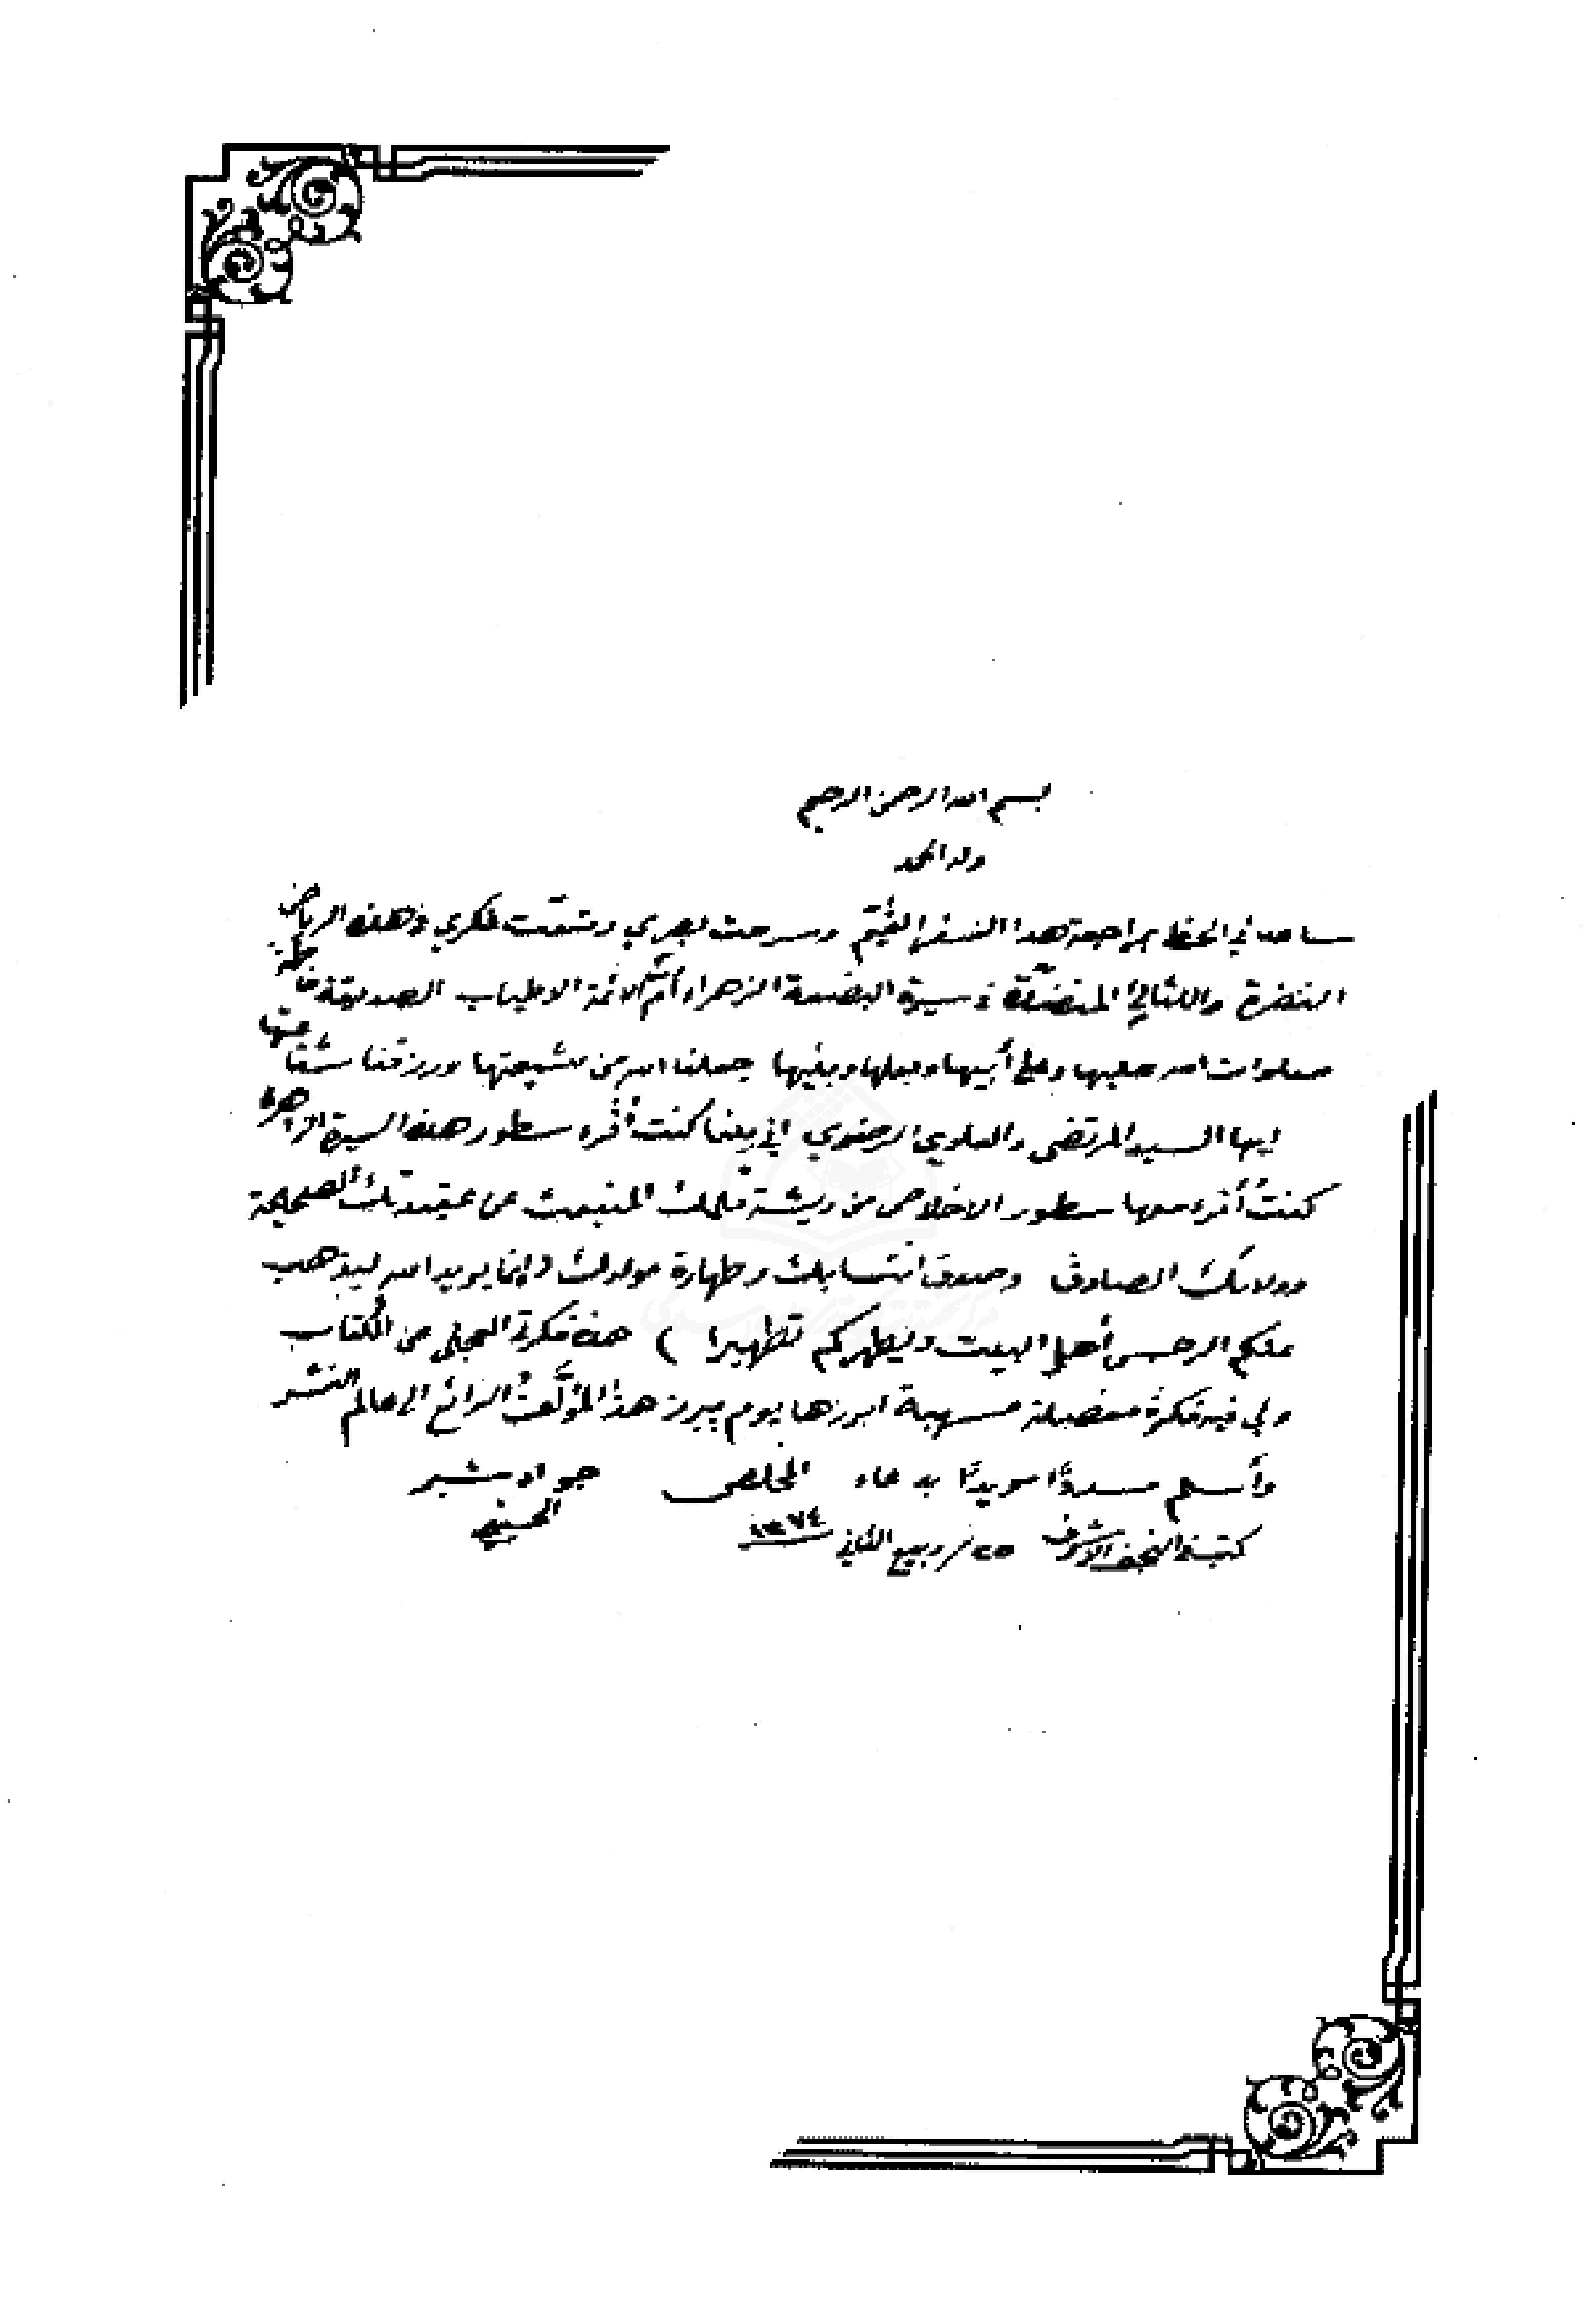 بسم الله الرحمن الرحيم
وله الحمد
ساعدني الحظ بمراجعة هذا السفر القيّم وسرحت بصري ومتعّت فكري في هذه الرياض
النضرة واللئالئ المنضّدة في سيرة البضعة الزهراء أمّ الائمة الاطياب الصديقة فاطمة
صلوات الله عليها وعلى أبيها وبعلها وبنيها جعلنا الله من شيعتها ورزقنا شفاعتها
ايها السيد المرتضى والعلوي الرضوي اني بينما كنت أقرء سطور هذه السيرة الزاهرة
كنت أقرء معها سطور الاخلاص من ريشة قلمك المنبعث عن عقيدتك الصحيحة
وولائك الصادق وصدق انتسابك وطهارة مولدك (إنما يريد الله ليذهب
عنكم الرجس أهل البيت ويطهركم تطهيرا) هذه فكرة العجلى عن الكتاب
ولي فيه فكرة مفصلة مسهبة ابرزها يوم يبرز هذا المؤلّف الرائع الى عالم النشر
وأسلم مسددًا مويدًا بدعاء المخلص جواد شبر
الحسيني
كتبه في النجف الاشرف ٢٥ / ربيع الثاني ١٣٧٤